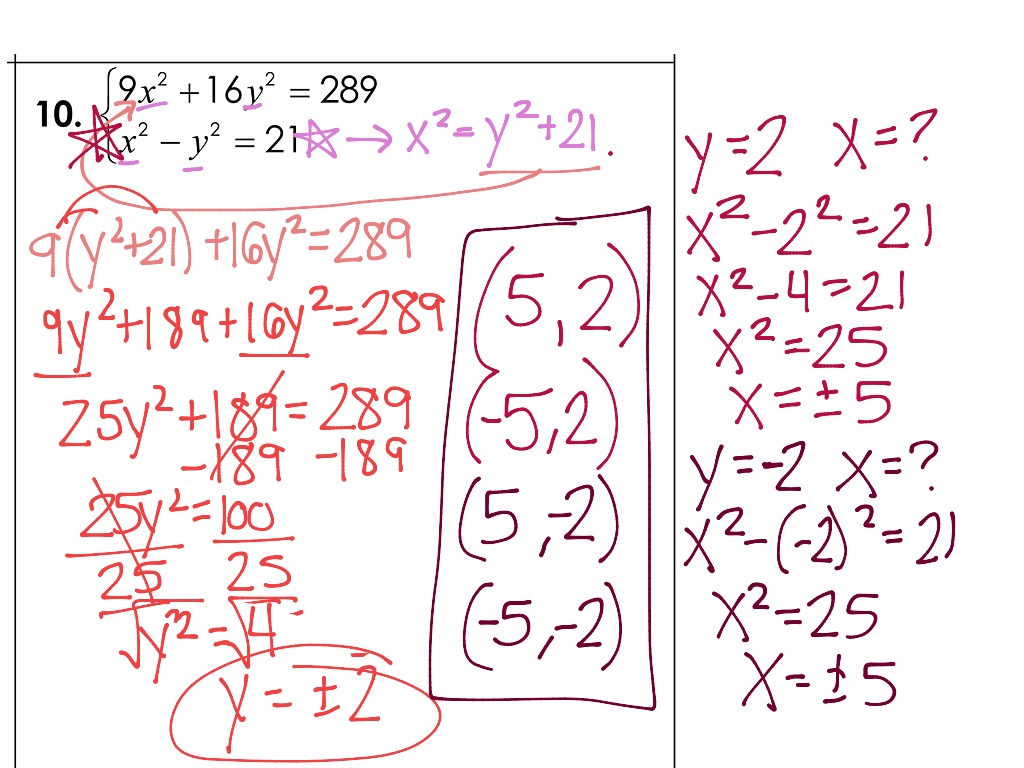 10. { 9x² + 16y² = 289
x² − y² = 21 → x² = y² + 21.
9(y² + 21) + 16y² = 289
9y² + 189 + 16y² = 289
25y² + 189 = 289
−189 −189
25y² = 100
25 25
√y² = √4
y = ± 2
(5, 2)
(-5, 2)
(5, -2)
(-5, -2)
y = 2 x = ?
x² − 2² = 21
x² − 4 = 21
x² = 25
x = ± 5
y = -2 x = ?
x² − (-2)² = 21
x² = 25
x = ± 5